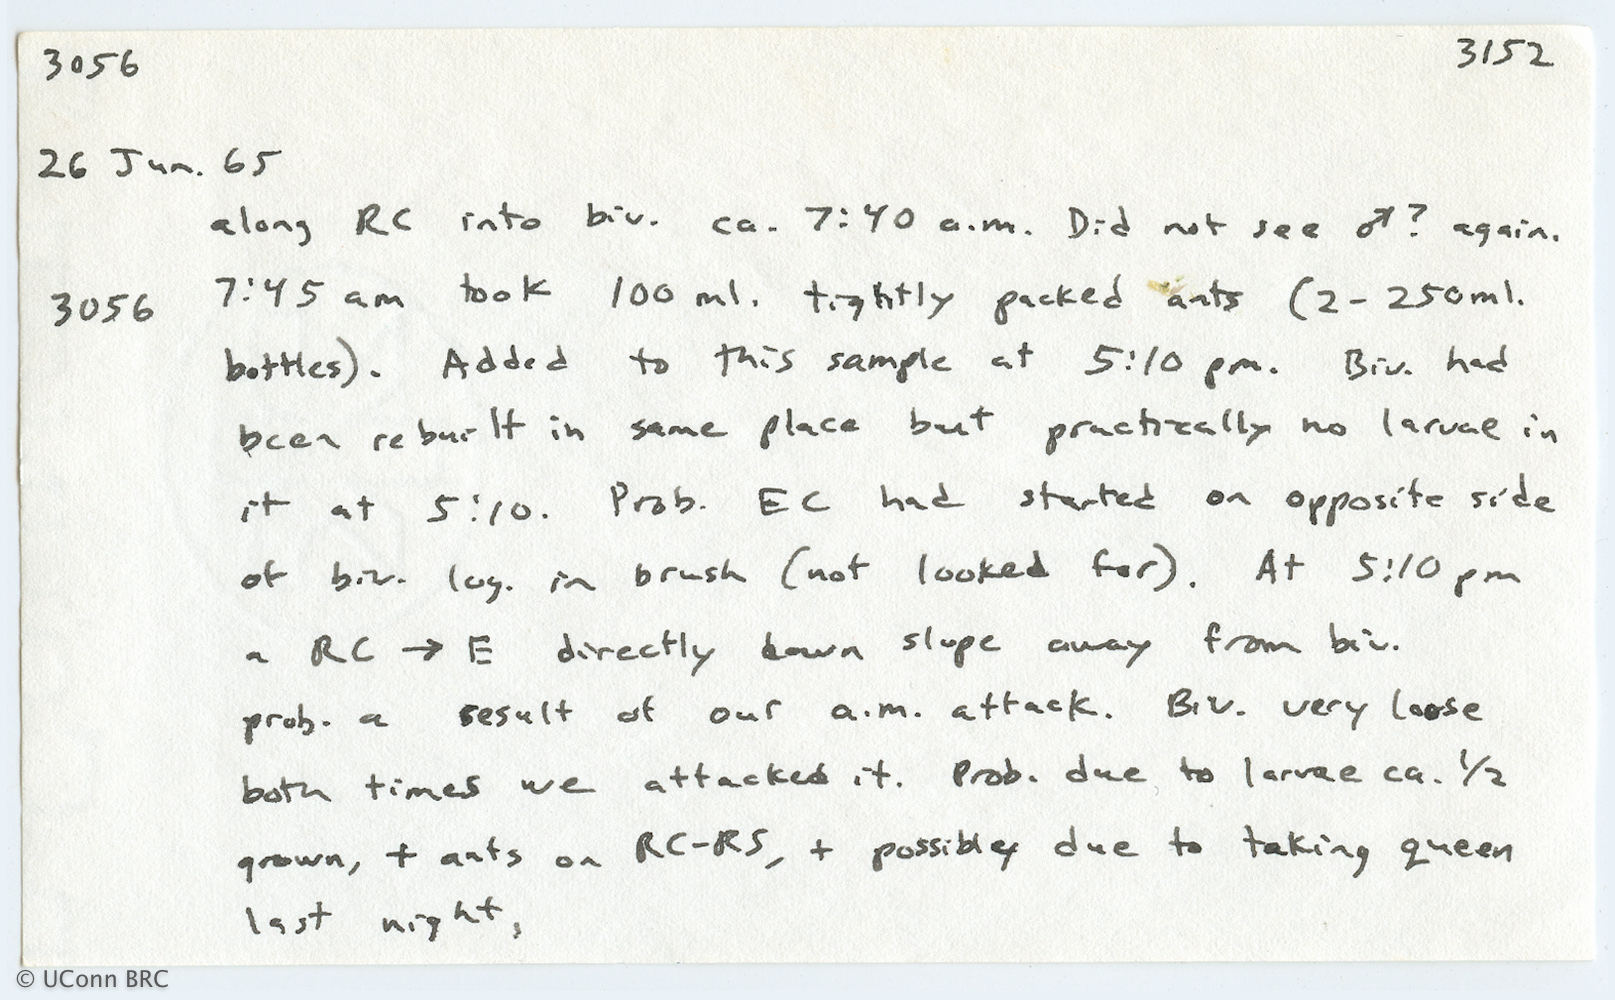 3056 3152
26 Jun. 65
along RC into biv. ca. 7:40 a.m. Did not see ♂? again.
3056 7:45 am took 100 ml. tightly packed ants (2-250ml.
bottles). Added to this sample at 5:10 pm. Biv. had
been rebuilt in same place but practically no larvae in
it at 5:10. Prob. EC had started on opposite side
of biv. log. in brush (not looked for). At 5:10 pm
a RC → E directly down slope away from biv.
prob. a result of our a.m. attack. Biv. very loose
both times we attacked it. Prob. due to larvae ca. 1/2
grown, + ants on RC-RS, + possibly due to taking queen
last night.
© UConn BRC